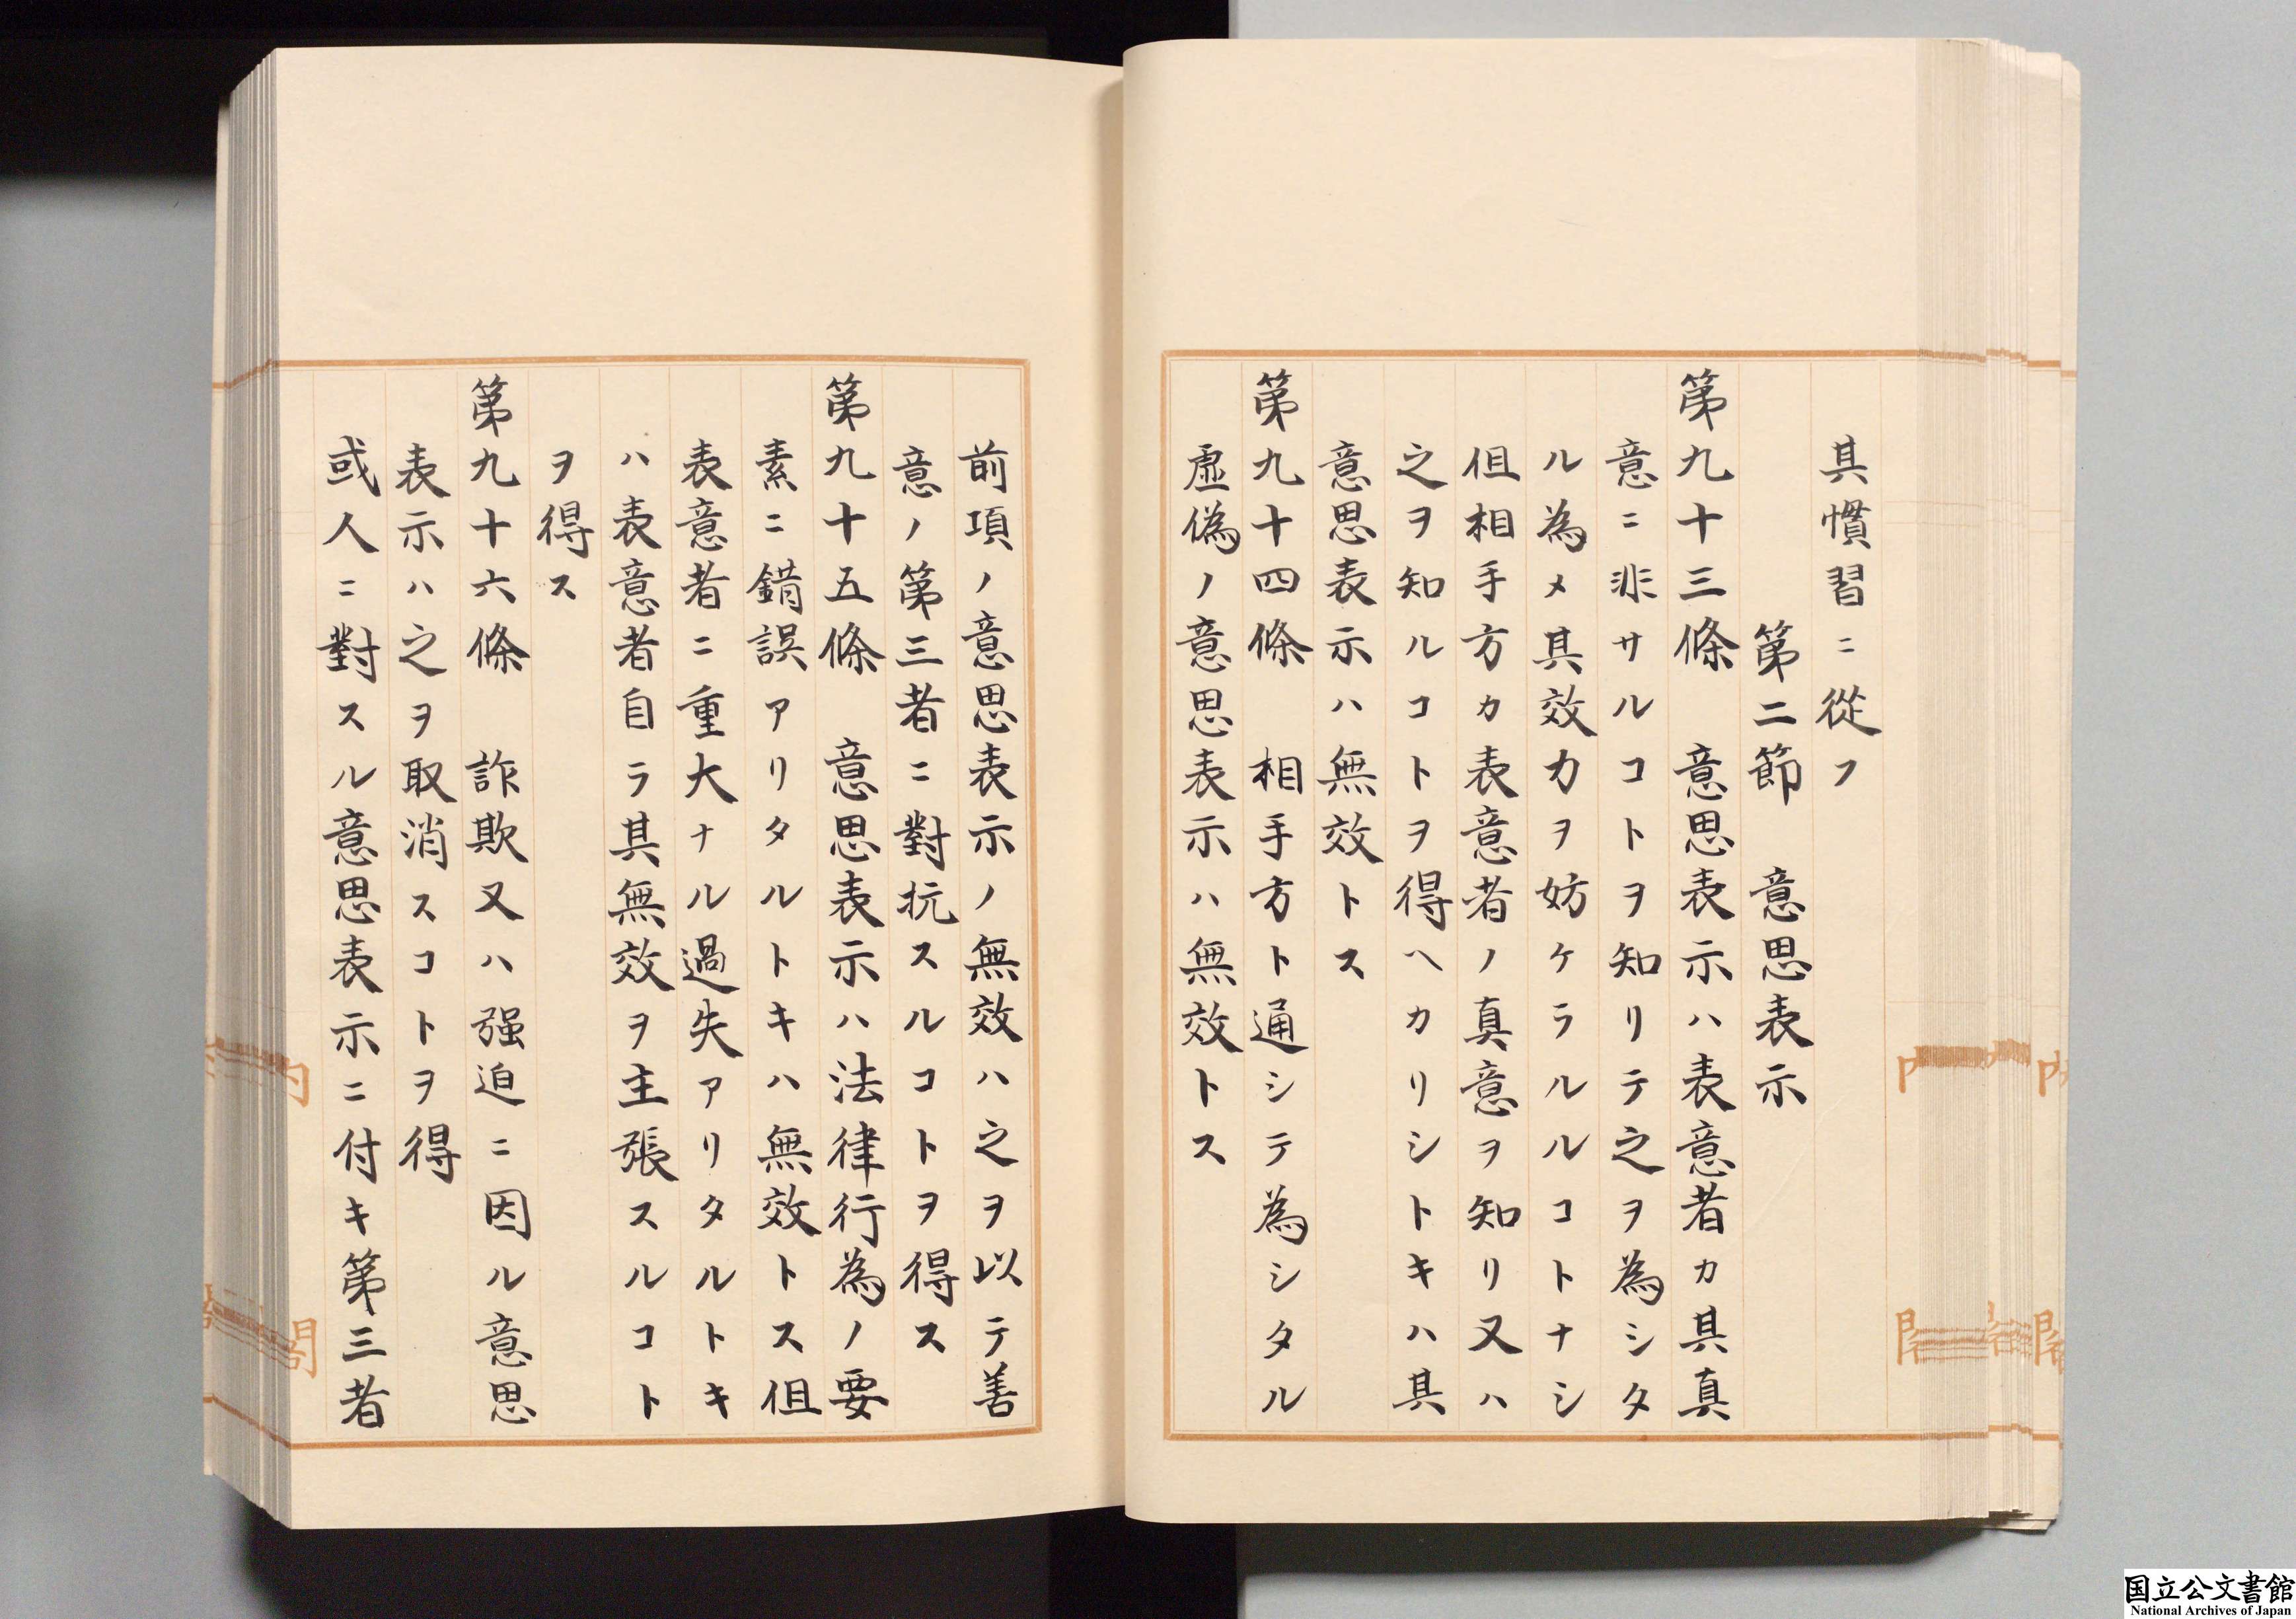 其慣習ニ從フ
第二節　意思表示
第九十三條　意思表示ハ表意者カ其真
意ニ非サルコトヲ知リテ之ヲ為シタ
ル為メ其效力ヲ妨ケラルルコトナシ
但相手方カ表意者ノ真意ヲ知リ又ハ
之ヲ知ルコトヲ得ヘカリシトキハ其
意思表示ハ無效トス
第九十四條　相手方ト通シテ為シタル
虛偽ノ意思表示ハ無效トス
前項ノ意思表示ノ無效ハ之ヲ以テ善
意ノ第三者ニ對抗スルコトヲ得ス
第九十五條　意思表示ハ法律行為ノ要
素ニ錯誤アリタルトキハ無效トス但
表意者ニ重大ナル過失アリタルトキ
ハ表意者自ラ其無效ヲ主張スルコト
ヲ得ス
第九十六條　詐欺又ハ强迫ニ因ル意思
表示ハ之ヲ取消スコトヲ得
或人ニ對スル意思表示ニ付キ第三者
国立公文書館
National Archives of Japan